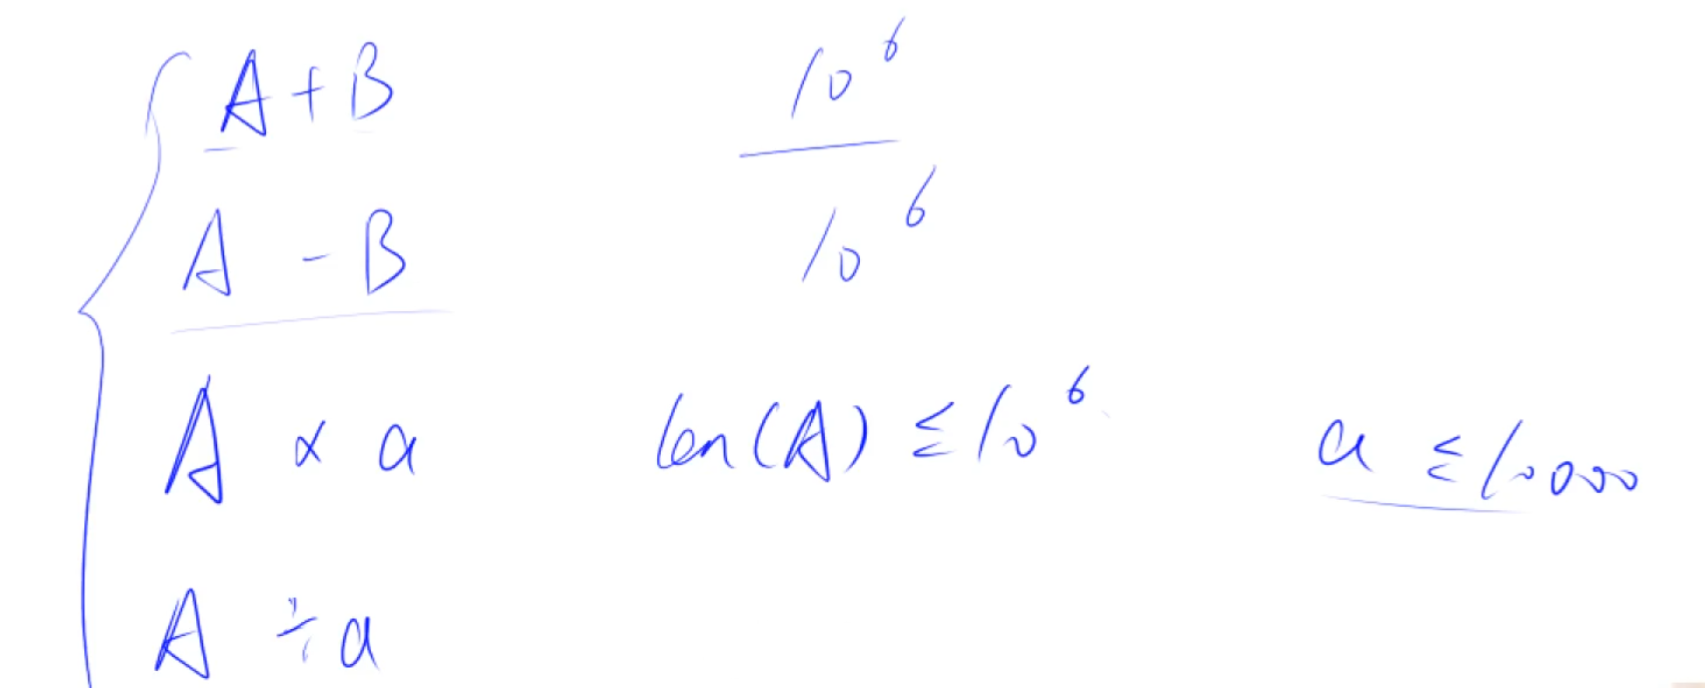 A + B 10^6
A - B 10^6
A × a len(A) ≤ 10^6 a ≤ 10000
A ÷ a